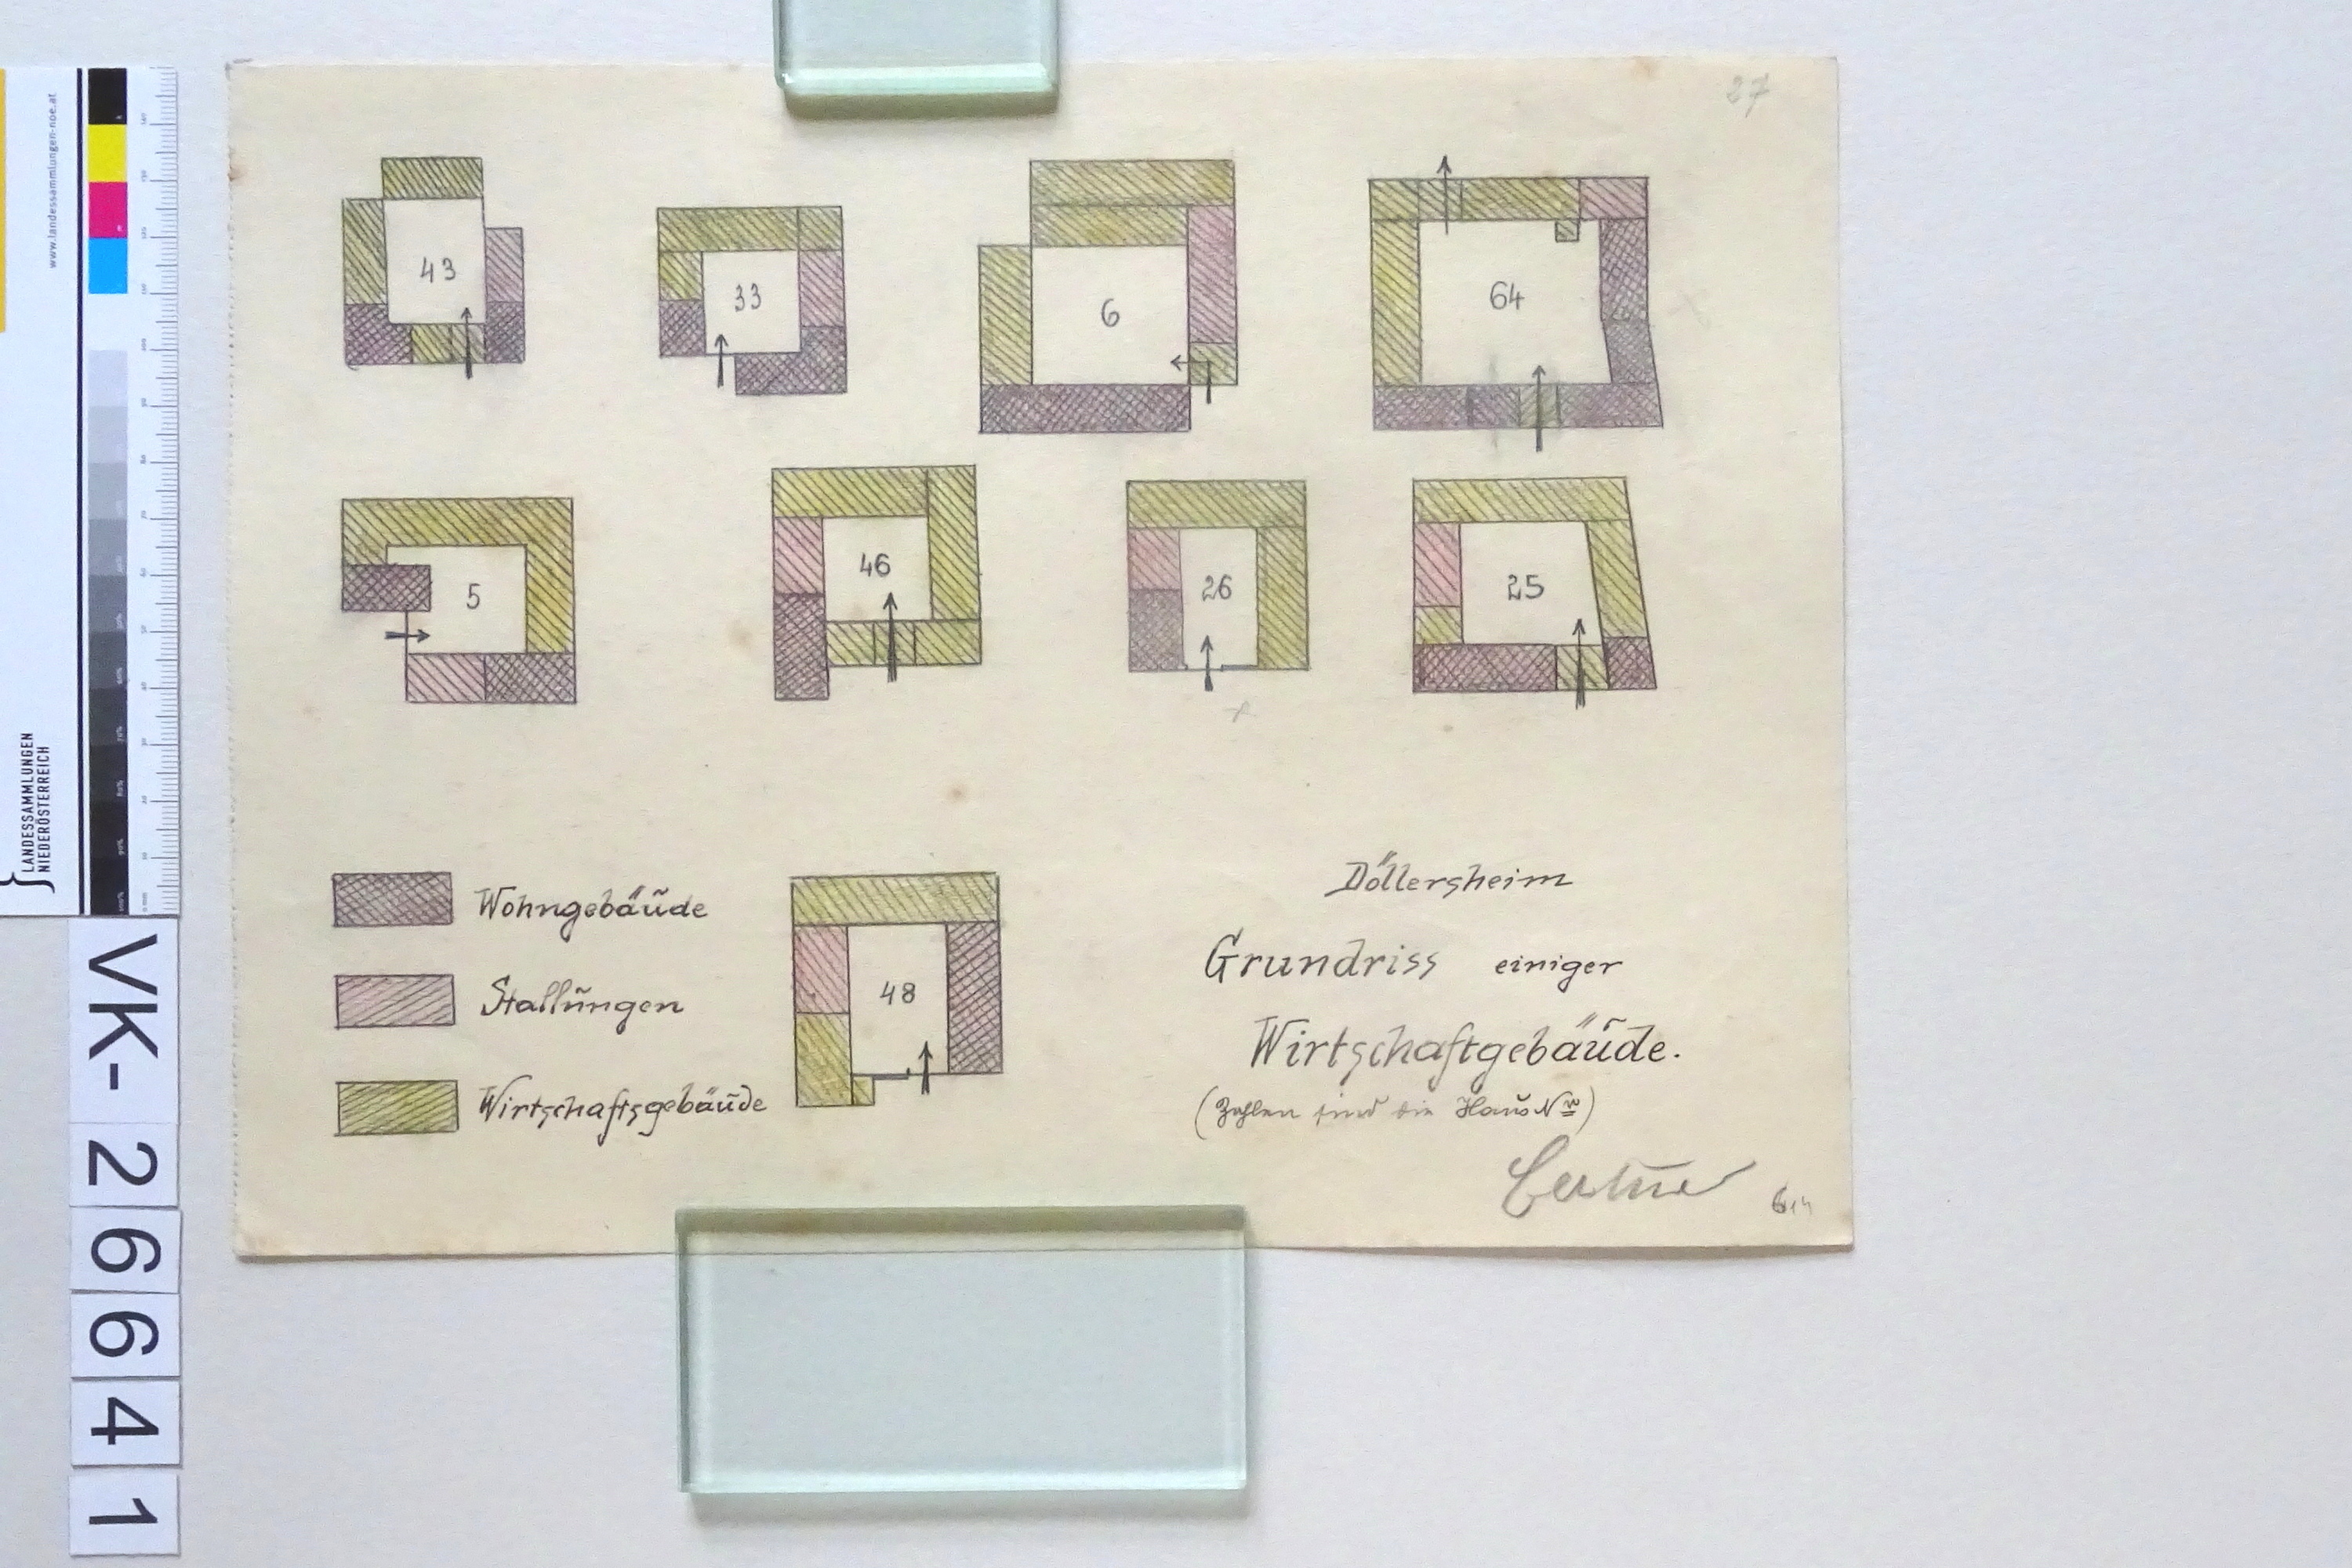 27
43
33
6
64
5
46
26
25
48
Wohngebäude
Stallungen
Wirtschaftsgebäude
Döllersheim
Grundriss einiger
Wirtschaftgebäude.
(Zahlen sind die Haus Nr)
www.landessammlungen-noe.at
LANDESSAMMLUNGEN
NIEDERÖSTERREICH
VK-26641